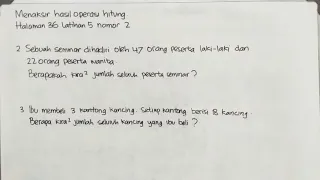 Menaksir hasil operasi hitung
Halaman 36 latihan 5 nomor 2
2. Sebuah seminar dihadiri oleh 47 orang peserta laki-laki dan
22 orang peserta wanita.
Berapakah kira² jumlah seluruh peserta seminar ?
3. Ibu membeli 3 kantong kancing. Setiap kantong berisi 8 kancing
Berapa kira² jumlah seluruh kancing yang ibu beli ?